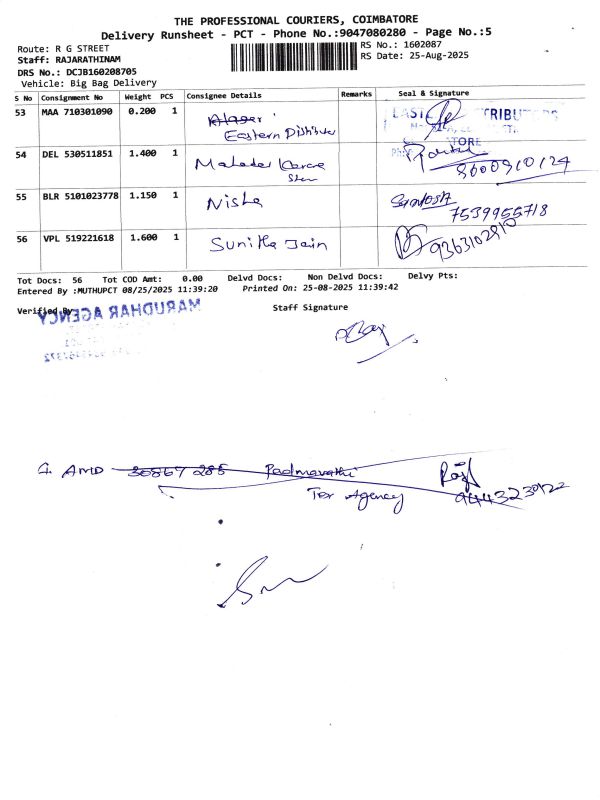 THE PROFESSIONAL COURIERS, COIMBATORE
Delivery Runsheet - PCT - Phone No.:9047080280 - Page No.:5
Route: R G STREET
RS No.: 1602087
Staff: RAJARATHINAM
RS Date: 25-Aug-2025
DRS No.: DCJB160208705
Vehicle: Big Bag Delivery
S No Consignment No Weight PCS Consignee Details Remarks Seal & Signature
53 MAA 710301090 0.200 1
Eastern Distributer
54 DEL 530511851 1.400 1
55 BLR 5101023778 1.150 1 Nisha Santosh
7539955718
56 VPL 519221618 1.600 1 Sunitha Jain 9363102910
Tot Docs: 56 Tot COD Amt: 0.00 Delvd Docs: Non Delvd Docs: Delvy Pts:
Entered By :MUTHUPCT 08/25/2025 11:39:20 Printed On: 25-08-2025 11:39:42
Verified By Staff Signature
MARUDHAR AGENCY
AMD 30867 285 Padmavathi
Tex Agency